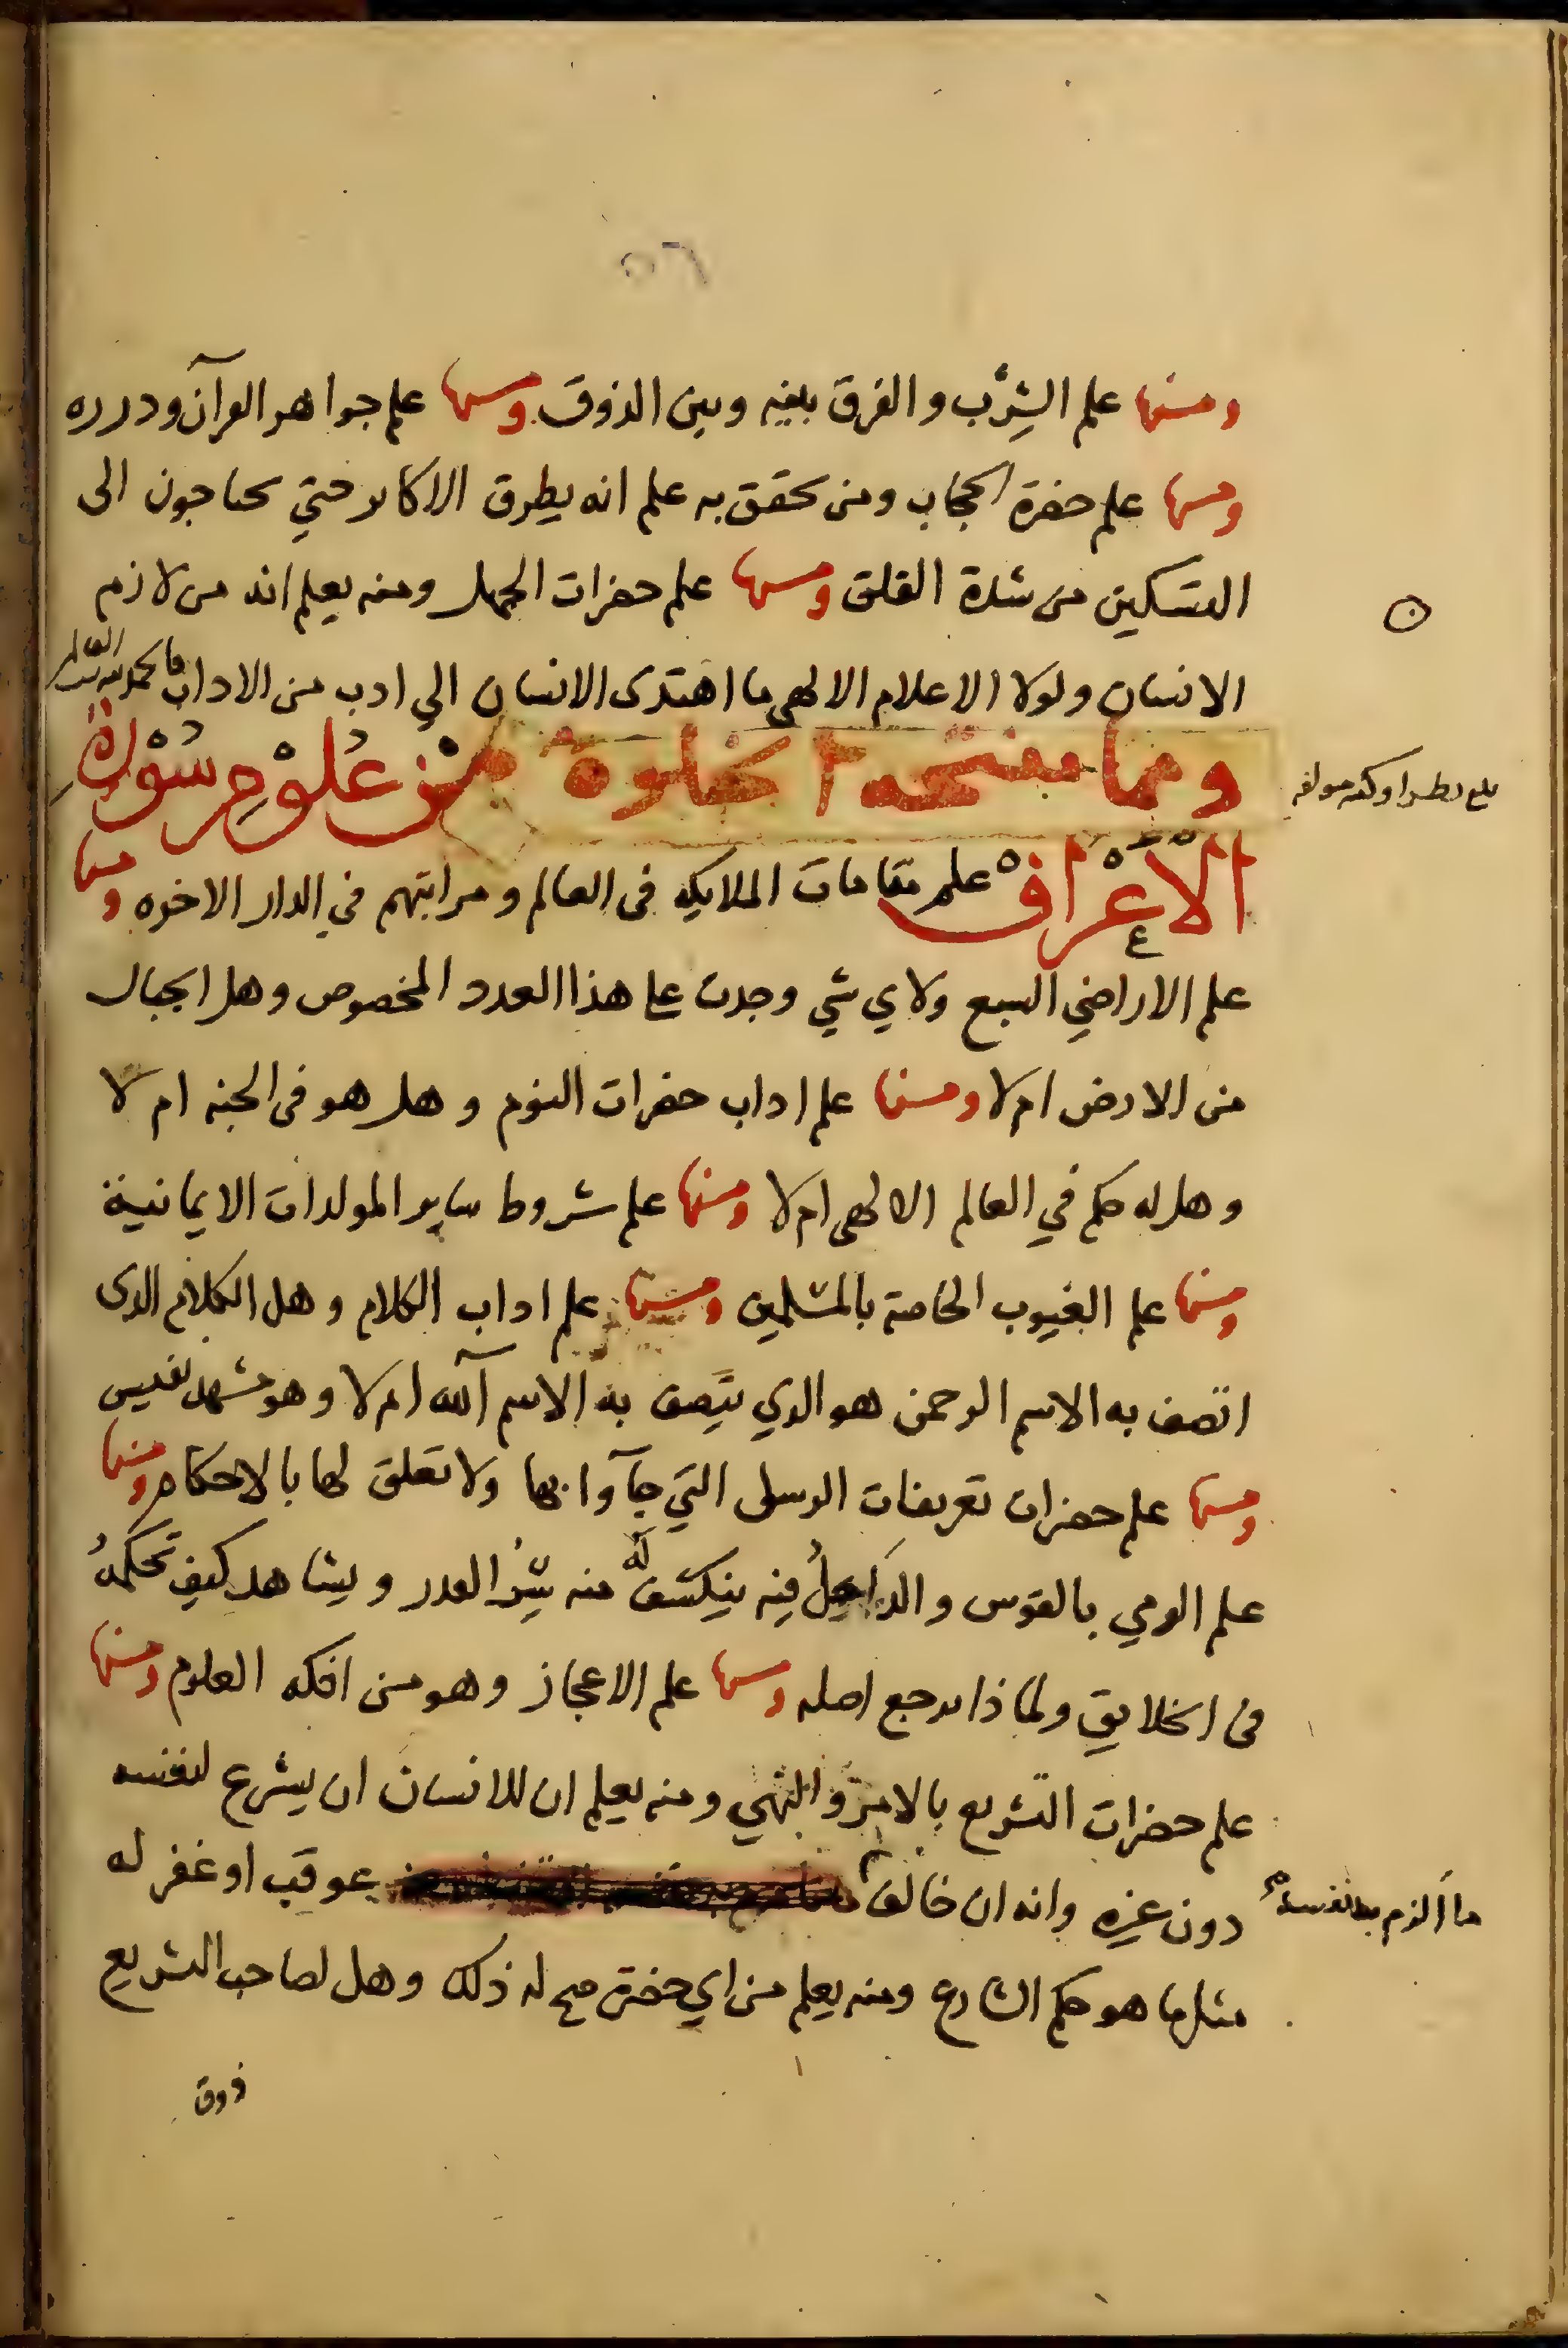 ومنها علم الشِرْب والفرق بينه وبين الذوق ومنها علم جواهر القرآن ودرره
ومنها علم حضرة الحجاب ومن تحقق به علم انه يطرق الاكابر حتي يحتاجون الى
التسكين من شدة القلق ومنها علم حضرات الجهل ومنه يعلم انه من لازم
الانسان ولولا الاعلام الالهى ما اهتدى الانسان الي ادب من الاداب فالحمد لله رب العالمين
ومما يفتحه الخلوة من علوم سورة
بلغ نظرا وكتبه مولفه
الاعراف علم مقامات الملايكه فى العالم ومراتبهم في الدار الاخره ومنها
علم الاراضي السبع ولاي شي وجدت على هذا العدد المخصوص وهل الجبال
من الارض ام لا ومنها علم اداب حضرات النوم وهل هو فى الجنه ام لا
وهل له حكم في العالم الالهى ام لا ومنها علم شروط ساير المولدات الايمانية
ومنها علم الغيوب الخاصة بالمسلمين ومنها علم اداب الكلام وهل الكلام الذى
اتصف به الاسم الرحمن هو الذي يتصف به الاسم الله ام لا وهو مشهد نفيس
ومنها علم حضرات تعريفات الرسل التي جآوا بها ولا تعلق لها بالاحكام ومنها
علم الرمي بالقوس والداخل فيه ينكشف له منه سر القدر ويشاهد كيف تحكمه
فى الخلايق ولماذا يرجع اصله ومنها علم الاعجاز وهو من افكه العلوم ومنها
علم حضرات التشريع بالامر والنهي ومنه يعلم ان للانسان ان يشرع لنفسه
دون غيره وانه ان خالف عوقب او غفر له
ما ألزم به نفسه
مثل ما هو حكم الشارع ومنه يعلم من اي حضرة صح له ذلك وهل لصاحب التشريع
ذوق